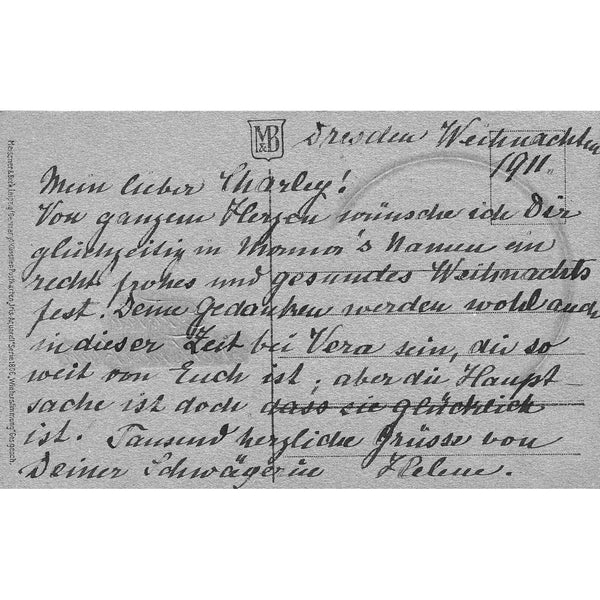 M&B
Dresden Weihnachten
1911.
Mein lieber Charley!
Von ganzem Herzen wünsche ich Dir
gleichzeitig in Mamma's Namen ein
recht frohes und gesundes Weihnachts
fest. Deine Gedanken werden wohl auch
in dieser Zeit bei Vera sein, die so
weit von Euch ist; aber die Haupt-
sache ist doch dass sie glücklich
ist. Tausend herzliche Grüsse von
Deiner Schwägerin Helene.
Meissner & Buch, Leipzig
Serie 1806